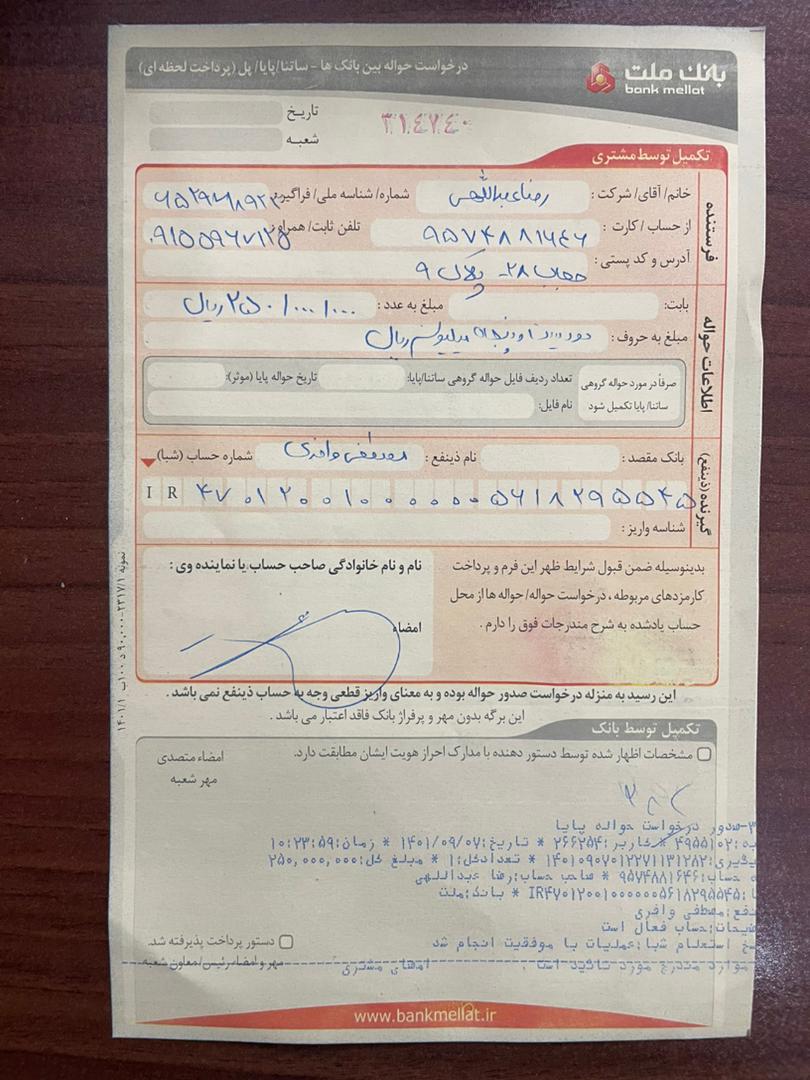 بانک ملت
bank mellat
درخواست حواله بین بانک ها - ساتنا/پایا/ پل (پرداخت لحظه ای)
تاریخ
۳۱۴۷۴۰
شعبه
تکمیل توسط مشتری
فرستنده
خانم/ آقای/ شرکت : رضا عبداللهی شماره/ شناسه ملی/ فراگیر:
از حساب / کارت : ۹۵۷۴۸۸۱۶۴۶ تلفن ثابت/ همراه:
آدرس و کد پستی : ۲۸- پلاک ۹
اطلاعات حواله
بابت: مبلغ به عدد : ۲۵۰/۰۰۰/۰۰۰ ریال
مبلغ به حروف : دویست و پنجاه میلیون ریال
صرفاً در مورد حواله گروهی ساتنا/ پایا تکمیل شود
تعداد ردیف فایل حواله گروهی ساتنا/پایا: تاریخ حواله پایا (موثر):
نام فایل:
گیرنده (ذینفع)
بانک مقصد : نام ذینفع : مصطفی وافری شماره حساب (شبا)
I R ۴۷۰۱۲۰۰۱۰۰۰۰۰۰۵۶۱۸۲۹۵۵۴۵
شناسه واریز :
بدینوسیله ضمن قبول شرایط ظهر این فرم و پرداخت
کارمزدهای مربوطه ، درخواست حواله/ حواله ها از محل
حساب یادشده به شرح مندرجات فوق را دارم .
نام و نام خانوادگی صاحب حساب یا نماینده وی :
امضاء
این رسید به منزله درخواست صدور حواله بوده و به معنای واریز قطعی وجه به حساب ذینفع نمی باشد .
این برگه بدون مهر و پرفراژ بانک فاقد اعتبار می باشد .
تکمیل توسط بانک
مشخصات اظهار شده توسط دستور دهنده با مدارک احراز هویت ایشان مطابقت دارد.
امضاء متصدی
مهر شعبه
۳-صدور درخواست حواله پایا
۴۹۵۵۱۰۲ * کاربر:۲۶۶۲۵۴ * تاریخ:۱۴۰۱/۰۹/۰۷ * زمان:۱۰:۲۳:۵۹
۱۴۰۱۰۹۰۷۰۱۲۲۷۱۱۳۱۲۸۲ * تعدادکل:۱ * مبلغ کل:۲۵۰,۰۰۰,۰۰۰
حساب:۹۵۷۴۸۸۱۶۴۶ * صاحب حساب:رضا عبداللهی
IR۴۷۰۱۲۰۰۱۰۰۰۰۰۰۵۶۱۸۲۹۵۵۴۵ * بانک:ملت
نفع:مصطفی وافری
حساب فعال است
استعلام شبا:عملیات با موفقیت انجام شد
موارد مندرج مورد تائید است . امضای مشتری
دستور پرداخت پذیرفته شد.
مهر و امضاء رئیس/معاون شعبه
www.bankmellat.ir
نمونه ۲۳۱۷/۱-۹۰,۰۰۰ د ۱۰۰ ب ۱۴۰۱/۱